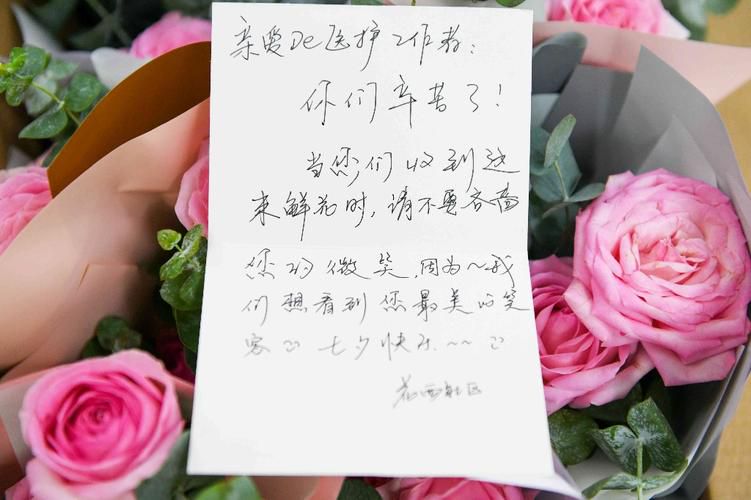 亲爱De医护工作者：
你们辛苦了！
当您们收到这
束鲜花时，请不要吝啬
您的微笑，因为~我
们想看到您最美的笑
容 七夕快乐~~
花西社区